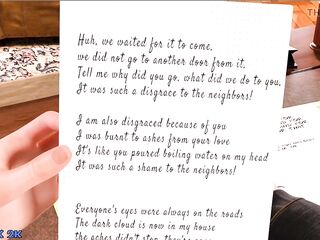 TH
Huh, we waited for it to come,
we did not go to another door from it.
Tell me why did you go, what did we do to you,
It was such a disgrace to the neighbors!
I am also disgraced because of you
I was burnt to ashes from your love
It's like you poured boiling water on my head
It was such a shame to the neighbors!
Everyone's eyes were always on the roads
The dark cloud is now in my house
2K